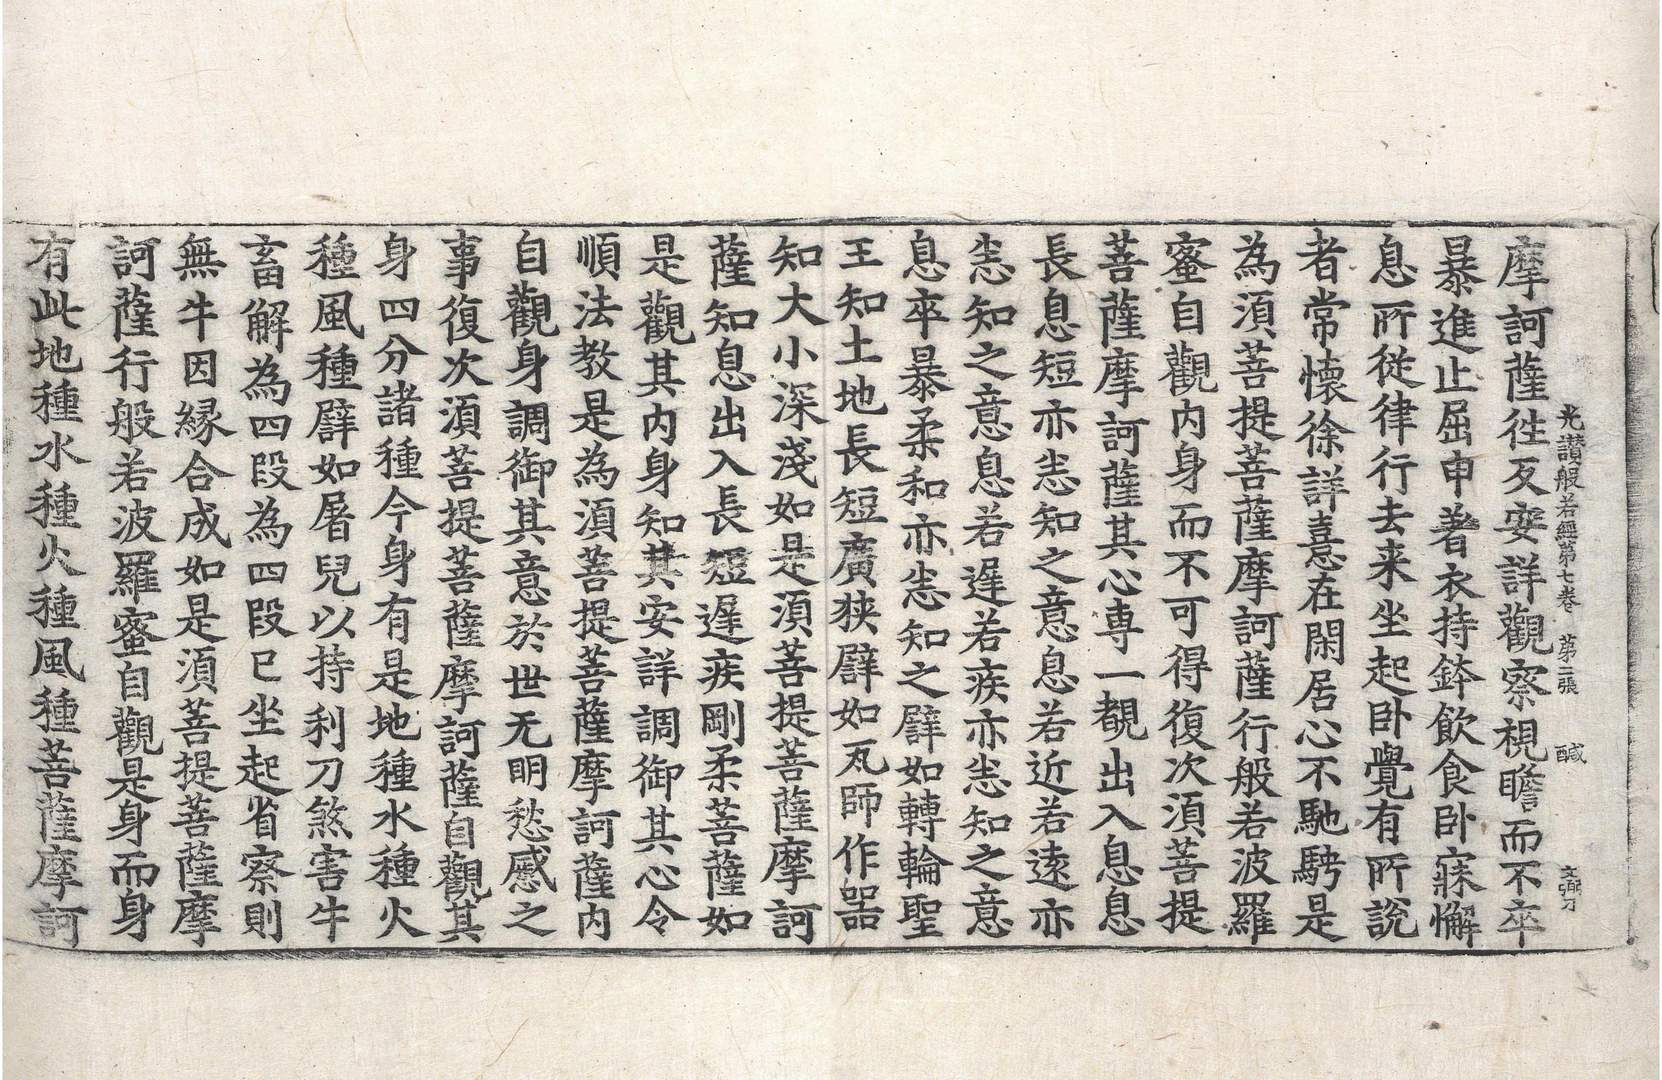 光讃般若經第七卷　第二張　醎　文弼刀
摩訶薩徃反安詳觀察視瞻而不卒
暴進止屈申著衣持鉢飲食卧寐懈
息所從律行去来坐起卧覺有所說
者常懷徐詳憙在閑居心不馳騁是
為須菩提菩薩摩訶薩行般若波羅
蜜自觀内身而不可得復次須菩提
菩薩摩訶薩其心専一覩出入息息
長息短亦悉知之意息若近若遠亦
悉知之意息若遲若疾亦悉知之意
息卒暴柔和亦悉知之譬如轉輪聖
王知土地長短廣狹譬如瓦師作器
知大小深淺如是須菩提菩薩摩訶
薩知息出入長短遲疾剛柔菩薩如
是觀其内身知其安詳調御其心令
順法教是為須菩提菩薩摩訶薩内
自觀身調御其意於世无明愁慼之
事復次須菩提菩薩摩訶薩自觀其
身四分諸種今身有是地種水種火
種風種譬如屠兒以持利刀煞害牛
畜解為四段為四段已坐起省察則
無牛因縁合成如是須菩提菩薩摩
訶薩行般若波羅蜜自觀是身而身
有此地種水種火種風種菩薩摩訶